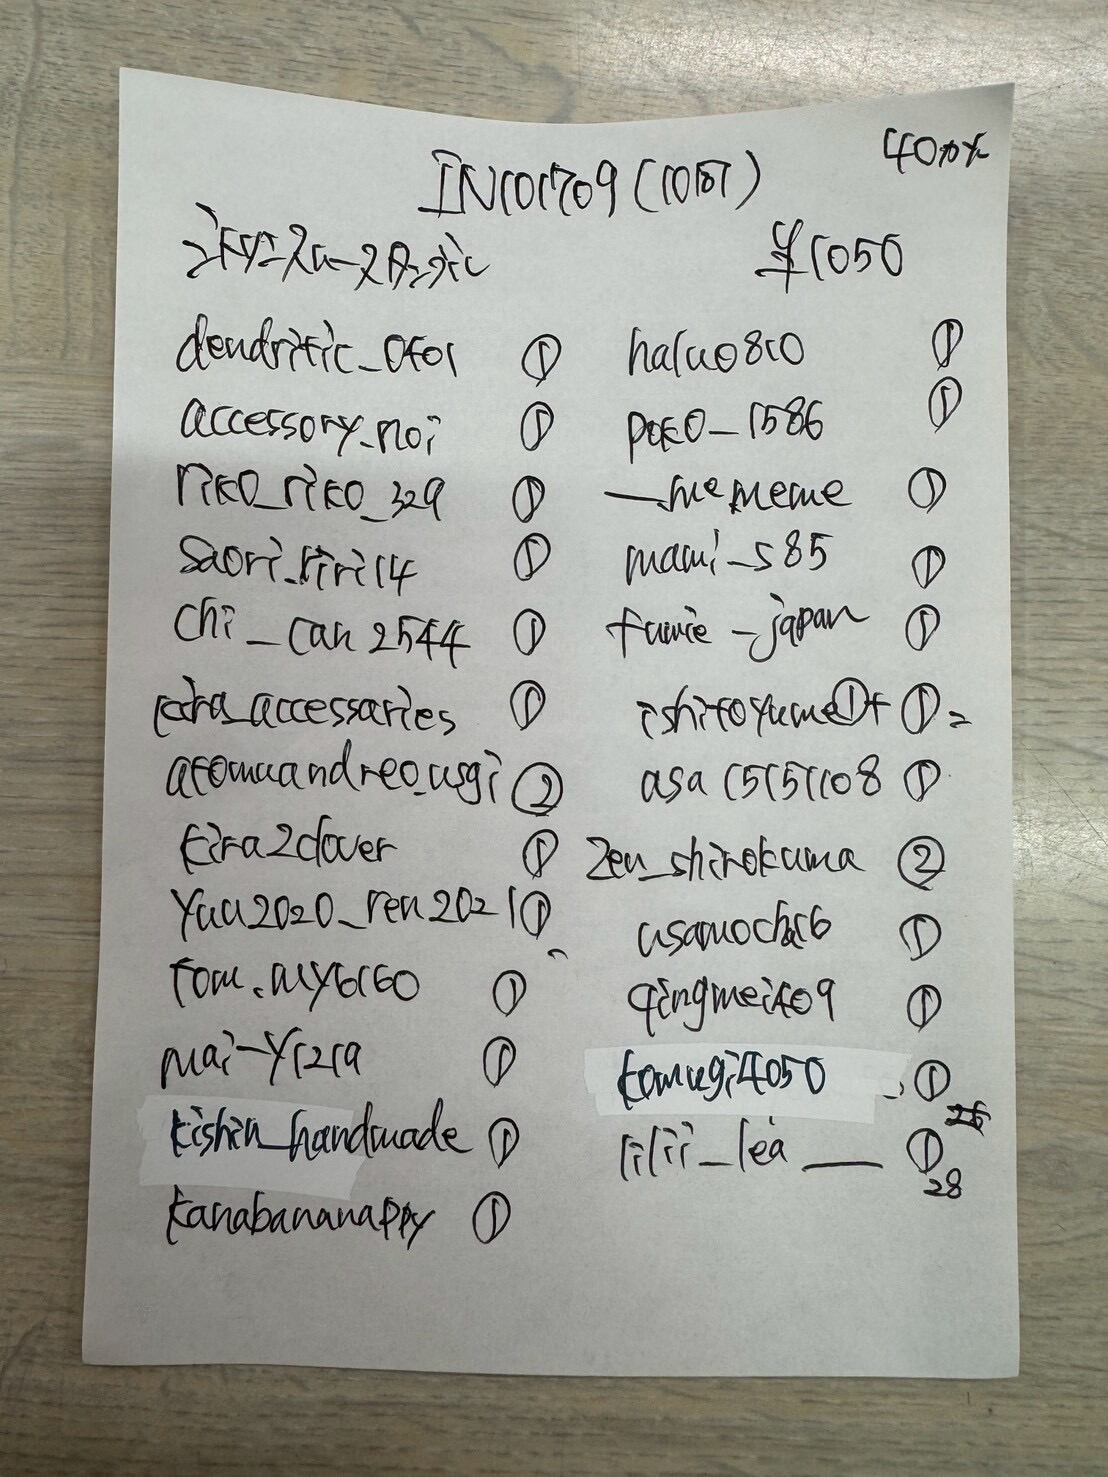 40％
IN101709(10時)
¥1050
dendritic_0401 ①
accessory_noi ①
riko_riko_329 ①
saori_riri14 ①
chi_can2544 ①
kira_accessaries ①
atomuandreo_usgi ②
kira2clover ①
yuu2020_ren2021 ①
tom.my6160 ①
mai-y1219 ①
kishin_handmade ①
kanabananappy ①
haluo810 ①
poko_1586 ①
__me meme ①
mami_s85 ①
fumie_japan ①
ishitoyume ①+①=
asa15151108 ①
zen_shirokuma ②
①
qingmei409 ①
komugi4050 ①
lilii_lea ___ ①
28